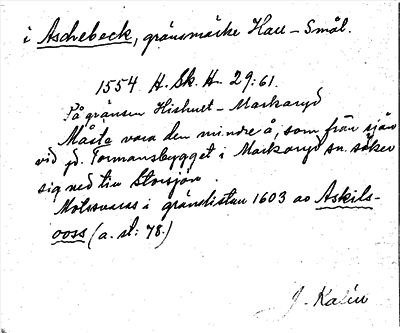 i Aschebeck, gränsmärke Hall - Smål.
1554 H. Sk. H. 29:61.
På gränsen Hishult - Markaryd
Måste vara den mindre å, som från sjön
vid gd. Tormansbygget i Markaryd sn. söker
sig ned till Storsjön.
Motsvaras i gränslistan 1603 av Askils-
ooss (a. st: 78.)
J. Kalén